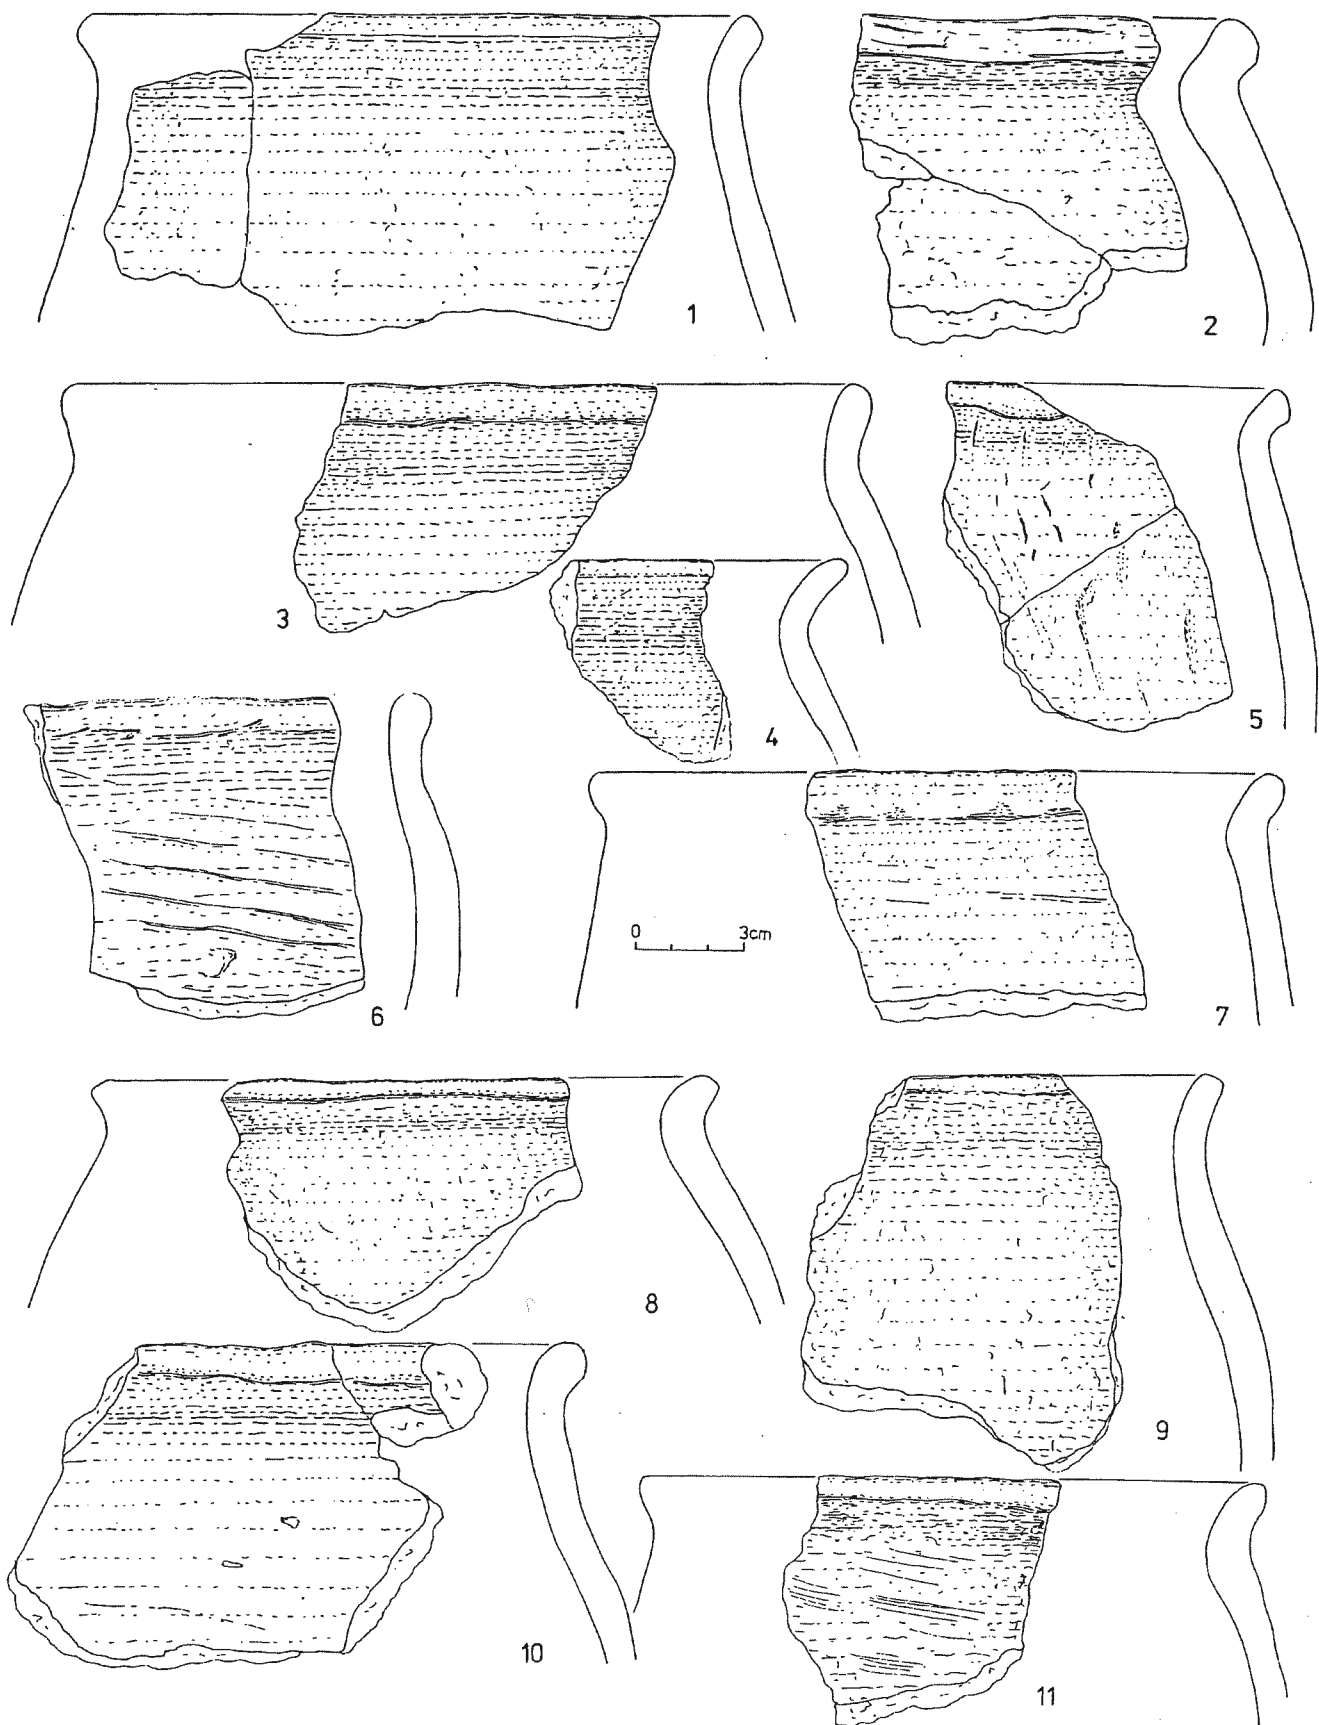 1
2
3
4
5
0 3cm
6
7
8
9
10
11